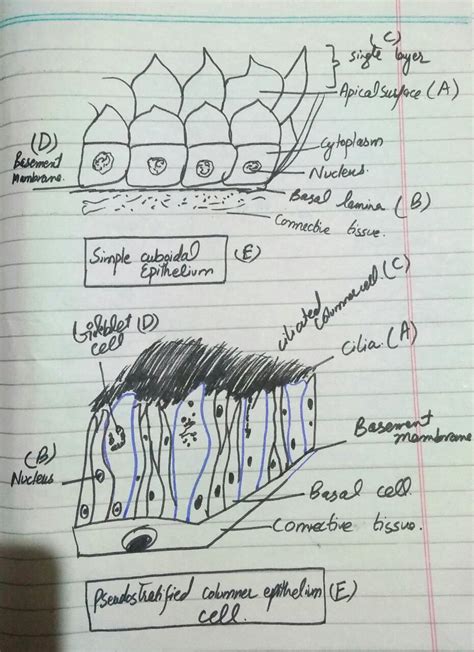 (C)
single layer
Apical surface (A)
(D)
Basement
Membrane.
Cytoplasm
Nucleus.
Basal lamina (B)
Connective tissue.
Simple cuboidal
Epithelium
(E)
Gobblet (D)
cell
ciliated columner cell. (C)
cilia. (A)
Basement
membrane.
(B)
Nucleus
Basal cell.
Connective tissue.
Pseudostratified columner epithelium
cell.
(E)